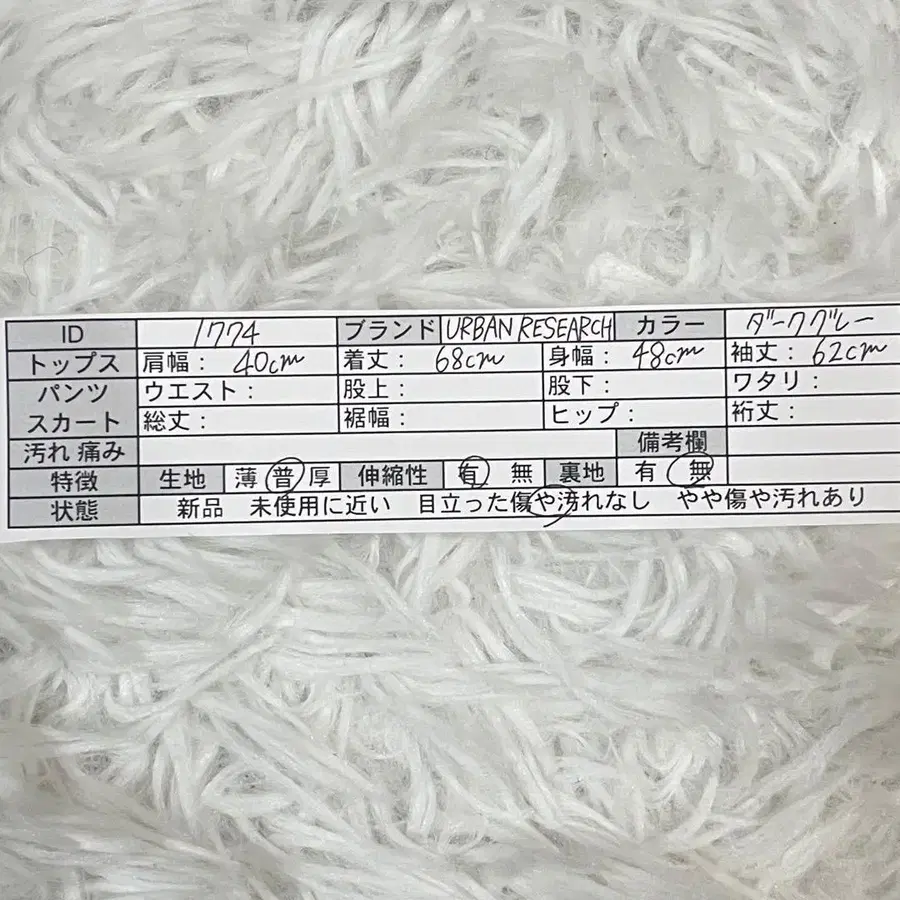 ID 1774 ブランド URBAN RESEARCH カラー ダークグレー
トップス 肩幅: 40cm 着丈: 68cm 身幅: 48cm 袖丈: 62cm
パンツ ウエスト: 股上: 股下: ワタリ:
スカート 総丈: 裾幅: ヒップ: 裄丈:
汚れ 痛み 備考欄
特徴 生地 薄 普 厚 伸縮性 有 無 裏地 有 無
状態 新品 未使用に近い 目立った傷や汚れなし やや傷や汚れあり